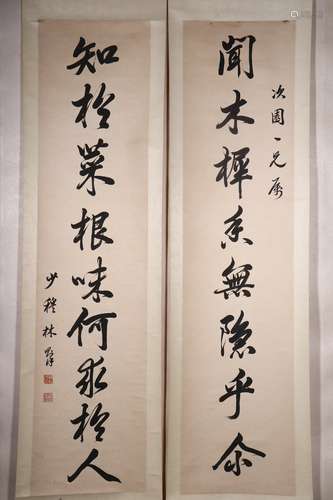 次園一兄属
聞木樨香無隱乎尒
知於菜根味何求於人
少穆林則徐